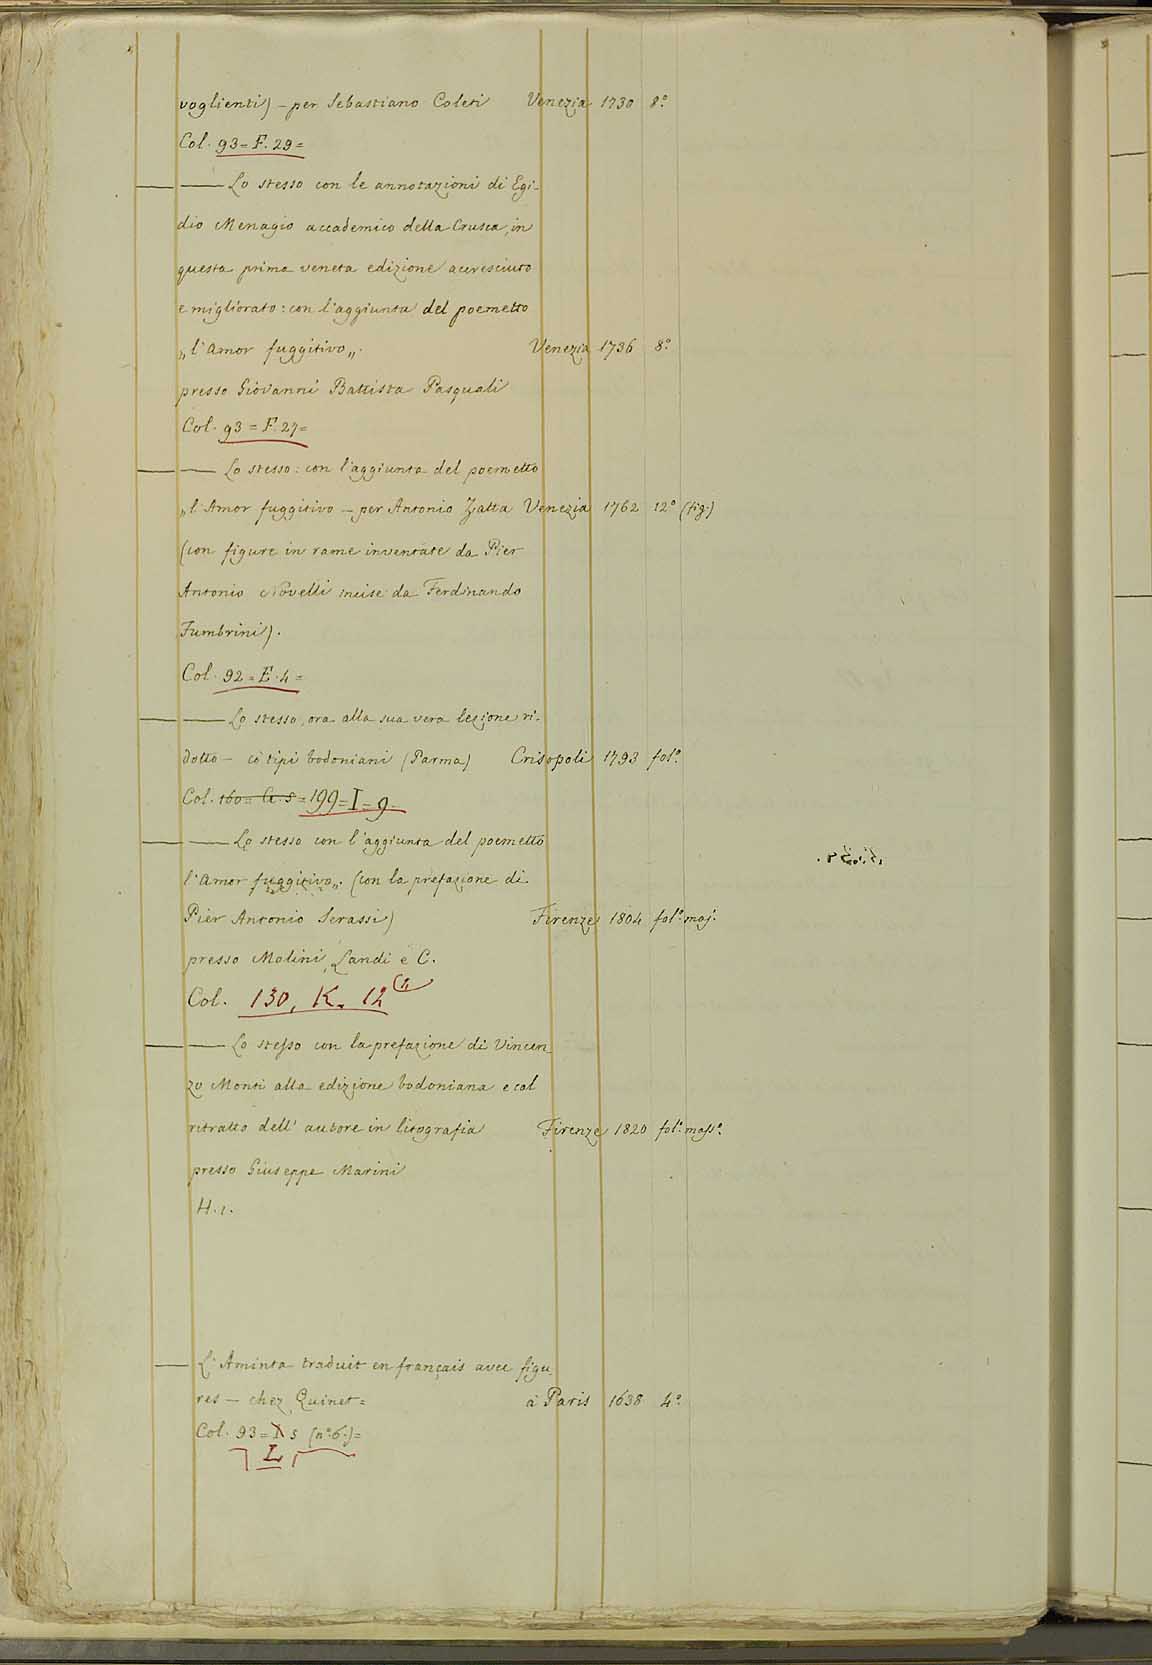 voglienti) – per Sebastiano Coleti Venezia 1730 8°
Col. 93 = F. 29 =
—— Lo stesso con le annotazioni di Egi-
dio Menagio accademico della Crusca, in
questa prima veneta edizione accresciuto
e migliorato: con l'aggiunta del poemetto
„l'Amor fuggitivo„. Venezia 1736 8°
presso Giovanni Battista Pasquali
Col. 93 = F. 27 =
—— Lo stesso: con l'aggiunta del poemetto
„l'Amor fuggitivo – per Antonio Zatta Venezia 1762 12° (fig.)
(con figure in rame inventate da Pier
Antonio Novelli incise da Ferdinando
Fumbrini).
Col. 92 = E. 4 =
—— Lo stesso, ora alla sua vera lezione ri-
dotto – co' tipi bodoniani (Parma) Crisopoli 1793 fol°.
Col. 160 = G. 5 = 199 = I = 9
—— Lo stesso con l'aggiunta del poemetto
l'Amor fuggitivo„. (con la prefazione di
Pier Antonio Serassi) Firenze 1804 fol°. maj.
presso Molini, Landi e C.
Col. 130, K. 12
—— Lo stesso con la prefazione di Vincen
zo Monti alla edizione bodoniana e col
ritratto dell'autore in litografia Firenze 1820 fol°. mass°.
presso Giuseppe Marini
H. 1.
—— L'Aminta traduit en français avec figu
res – chez Quinet = à Paris 1638 4°.
Col. 93 = I 5 (n°. 6.) =
L